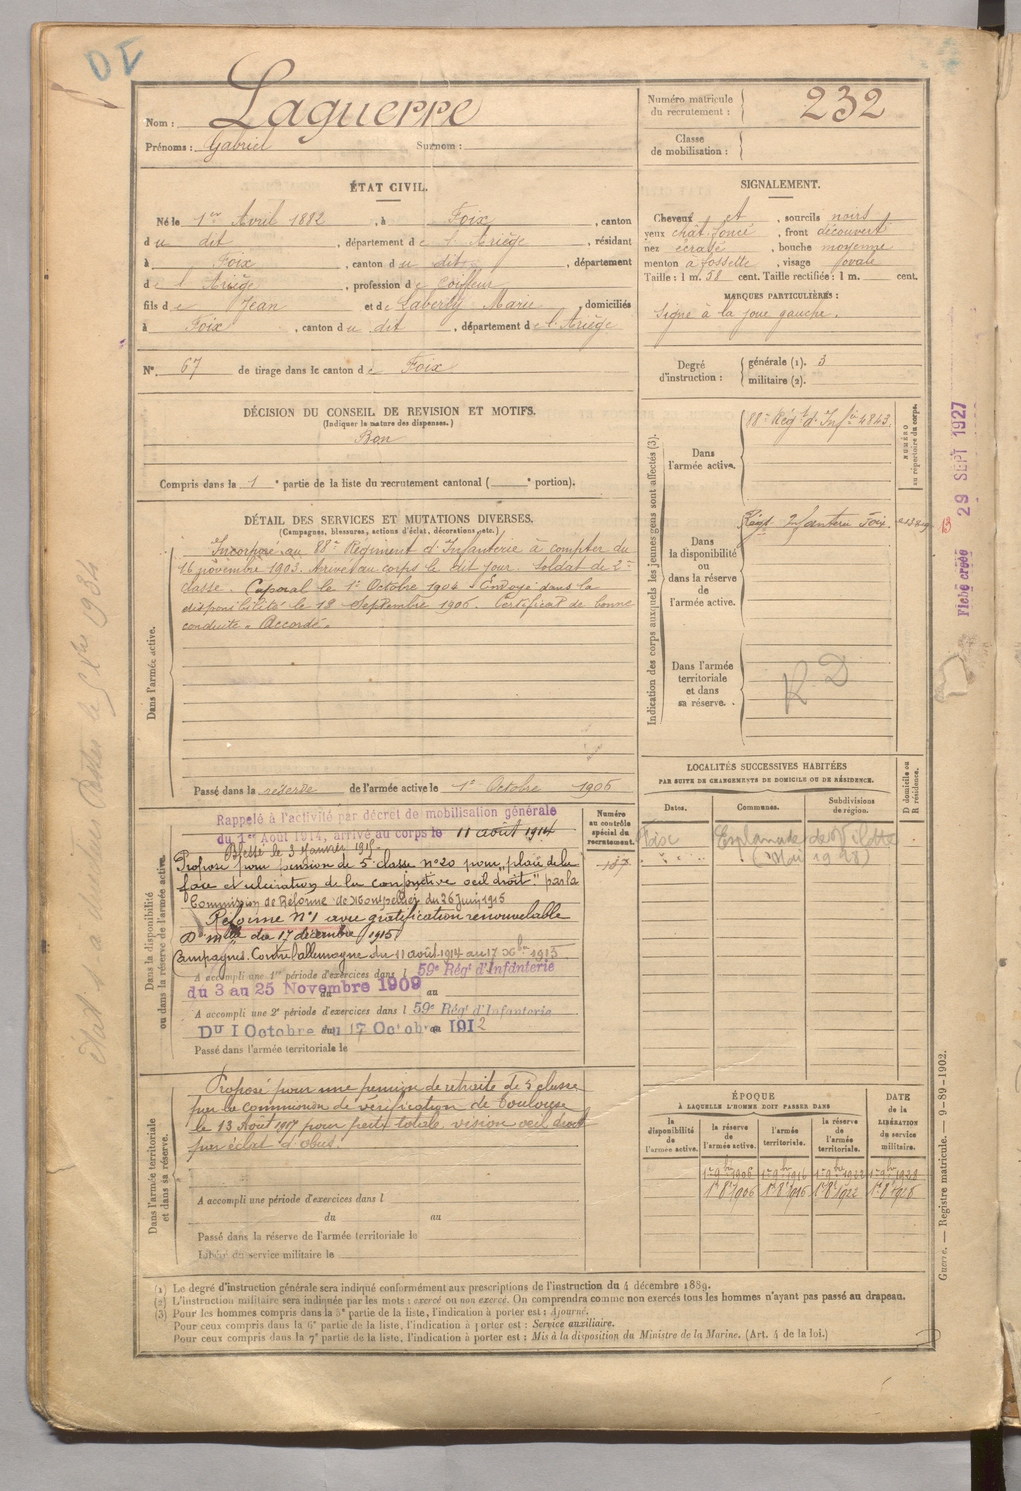 Nom : Laguerre
Prénoms : Gabriel Surnom :
Numéro matricule du recrutement : 232
Classe de mobilisation :
ÉTAT CIVIL.
Né le 1er Avril 1882, à Foix, canton
du dit, département de l'Ariège, résidant
à Foix, canton du dit, département
de l'Ariège, profession de coiffeur
fils de Jean et de Laberty Marie domiciliés
à Foix, canton du dit, département de l'Ariège
N° 67 de tirage dans le canton de Foix
SIGNALEMENT.
Cheveux et, sourcils noirs
yeux chât. foncé, front découvert
nez écrasé, bouche moyenne
menton à fossette, visage ovale
Taille : 1 m. 58 cent. Taille rectifiée : 1 m. cent.
MARQUES PARTICULIÈRES :
Signe à la joue gauche.
Degré d'instruction : générale (1). 3
militaire (2).
DÉCISION DU CONSEIL DE REVISION ET MOTIFS.
(Indiquer la nature des dispenses.)
Bon
Compris dans la 1e partie de la liste du recrutement cantonal ( e portion).
DÉTAIL DES SERVICES ET MUTATIONS DIVERSES.
(Campagnes, blessures, actions d'éclat, décorations, etc.)
Dans l'armée active.
Incorporé au 88e Régiment d'Infanterie à compter du
16 novembre 1903. Arrivé au corps le dit jour. Soldat de 2e
classe. Caporal le 1er Octobre 1904. Envoyé dans la
disponibilité le 18 Septembre 1906. Certificat de bonne
conduite "Accordé"
Passé dans la réserve de l'armée active le 1er Octobre 1906
Indication des corps auxquels les jeunes gens sont affectés (3).
NUMÉRO au répertoire du corps.
Dans l'armée active.
88e Régt d'Infie 4843
Dans la disponibilité ou dans la réserve de l'armée active.
Régt Infanterie Foix
Dans l'armée territoriale et dans sa réserve.
R D
Fiche créée 29 SEPT 1927
LOCALITÉS SUCCESSIVES HABITÉES
PAR SUITE DE CHANGEMENTS DE DOMICILE OU DE RÉSIDENCE.
Dates. Communes. Subdivisions de région. D domicile ou R résidence.
Esplanade de Vilote
(Mai 1928)
Dans la disponibilité ou dans la réserve de l'armée active.
Numéro au contrôle spécial du recrutement.
Rappelé à l'activité par décret de mobilisation générale
du 1er Août 1914, arrivé au corps le 11 août 1914
Blessé le 3 Janvier 1915.
Proposé pour pension de 5e classe n° 20 pour "plaie de la
face et ulcération de la conjonctive oeil droit" par la
Commission de Réforme de Montpellier du 26 juin 1915
Réformé N°1 avec gratification renouvelable
Don mlle du 17 décembre 1915
Campagnes. Contre l'allemagne du 11 août 1914 au 17 Xbre 1915
A accompli une 1re période d'exercices dans l 59e Régt d'Infanterie
du 3 au 25 Novembre 1909
A accompli une 2e période d'exercices dans l 59e Régt d'Infanterie
Du 1 Octobre au 17 Octobre 1912
Passé dans l'armée territoriale le
Dans l'armée territoriale et dans sa réserve.
Proposé pour une pension de retraite de 5e classe
par la commission de vérification de Toulouse
le 13 Août 1917 pour perte totale vision oeil droit
par éclat d'obus.
A accompli une période d'exercices dans l
du au
Passé dans la réserve de l'armée territoriale le
Libéré du service militaire le
ÉPOQUE
À LAQUELLE L'HOMME DOIT PASSER DANS
la disponibilité de l'armée active.
la réserve de l'armée active.
l'armée territoriale.
la réserve de l'armée territoriale.
DATE de la LIBÉRATION du service militaire.
1er 9bre 1906 1er 9bre 1916 1er 9bre 1922 1er 9bre 1928
1er 8bre 1906 1er 8bre 1916 1er 8bre 1922 1er 8bre 1928
(1) Le degré d'instruction générale sera indiqué conformément aux prescriptions de l'instruction du 4 décembre 1889.
(2) L'instruction militaire sera indiquée par les mots : exercé ou non exercé. On comprendra comme non exercés tous les hommes n'ayant pas passé au drapeau.
(3) Pour les hommes compris dans la 5e partie de la liste, l'indication à porter est : Ajourné.
Pour ceux compris dans la 6e partie de la liste, l'indication à porter est : Service auxiliaire.
Pour ceux compris dans la 7e partie de la liste, l'indication à porter est : Mis à la disposition du Ministre de la Marine. (Art. 4 de la loi.)
Guerre. — Registre matricule. — 9-89-1902.